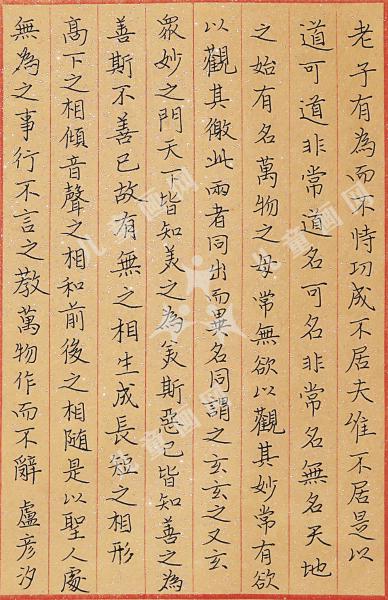 老子有為而不恃功成不居夫唯不居是以
道可道非常道名可名非常名無名天地
之始有名萬物之母常無欲以觀其妙常有欲
以觀其徼此兩者同出而異名同謂之玄玄之又玄
眾妙之門天下皆知美之為美斯惡已皆知善之為
善斯不善已故有無之相生成長短之相形
高下之相傾音聲之相和前後之相随是以聖人處
無為之事行不言之教萬物作而不辭 盧彦汐
儿童画网
儿童画网
儿童画网